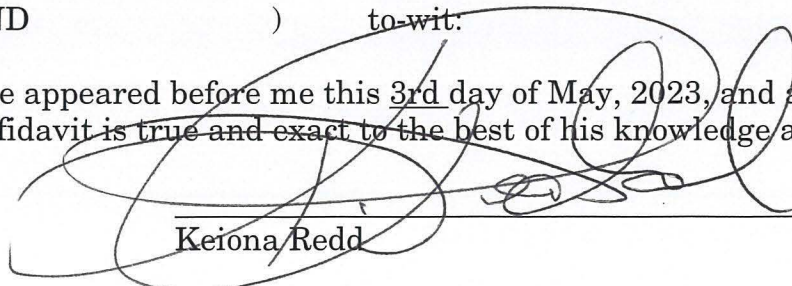 ND ) to-wit:
e appeared before me this 3rd day of May, 2023, and a
ffidavit is true and exact to the best of his knowledge a
Keiona Redd